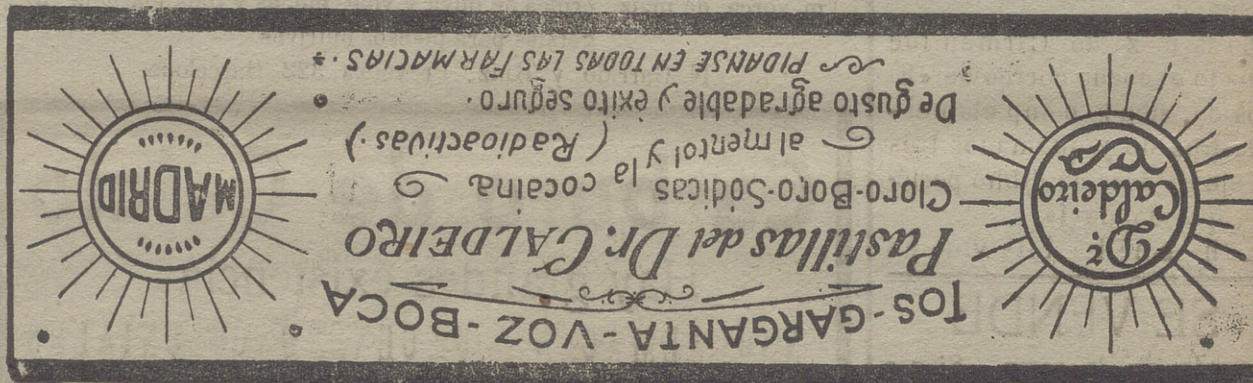 TOS-GARGANTA-VOZ-BOCA
Dr.
Caldeiro
Pastillas del Dr. CALDEIRO
Cloro-Boro-Sódicas
al mentol y la cocaina
(Radioactivas)
De gusto agradable y éxito seguro.
PIDANSE EN TODAS LAS FARMACIAS.
MADRID